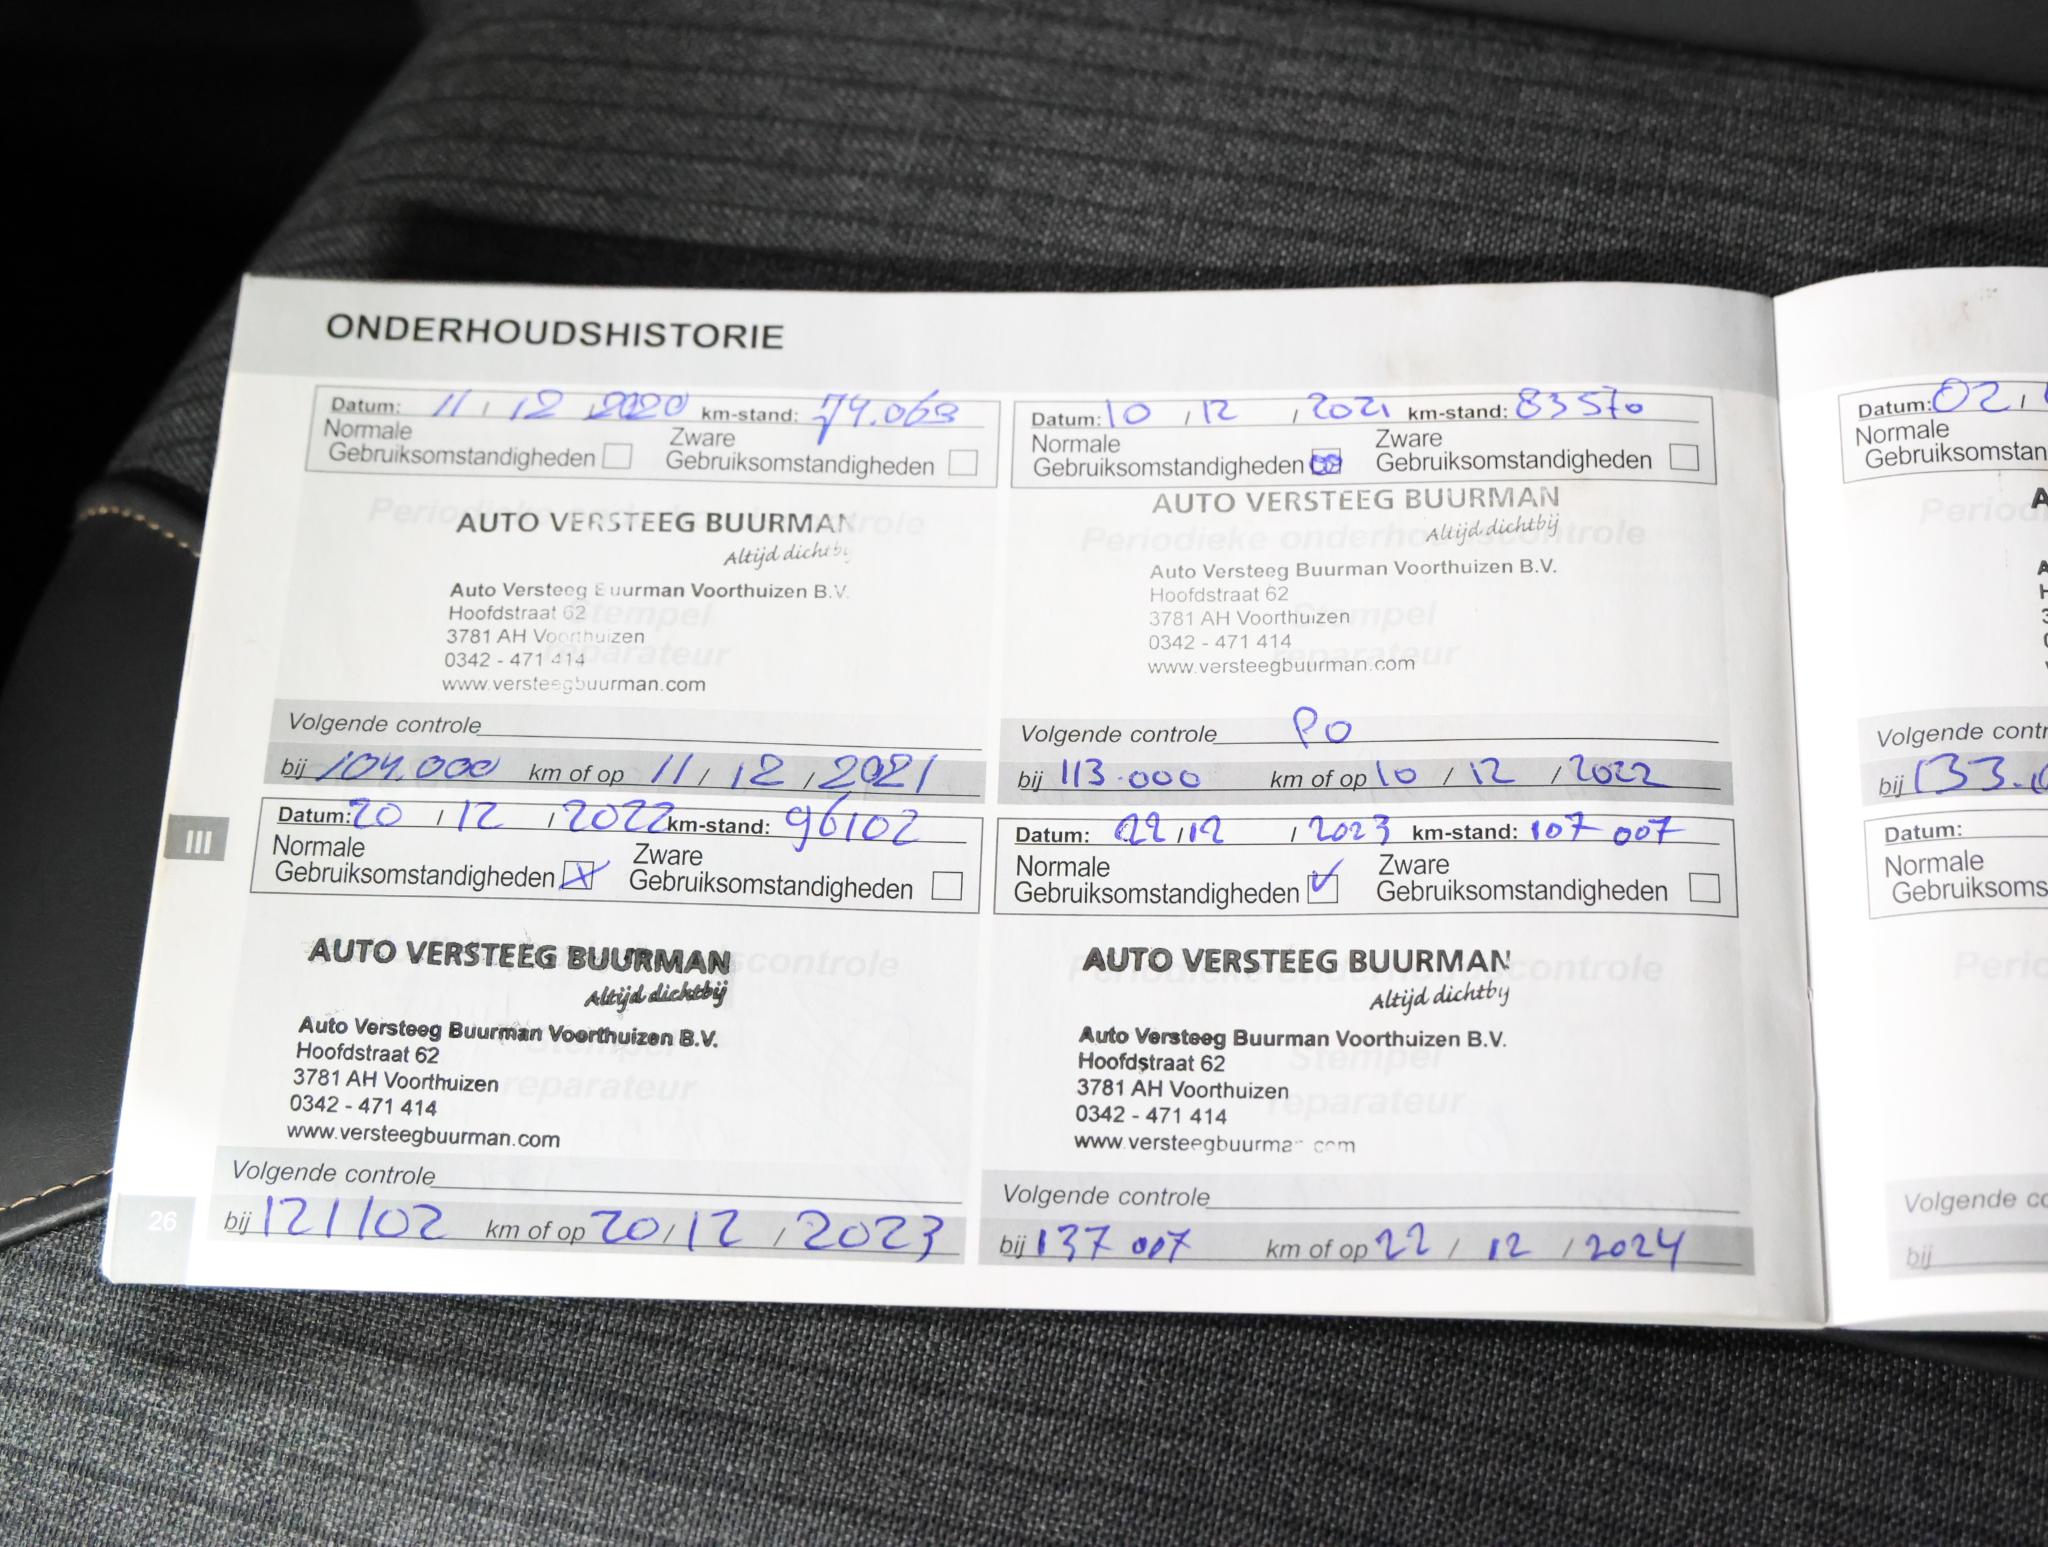 ONDERHOUDSHISTORIE
Datum: 11 / 12 / 2020 km-stand: 74.063
Normale Gebruiksomstandigheden
Zware Gebruiksomstandigheden
Periodieke onderhoudscontrole
AUTO VERSTEEG BUURMAN
Altijd dichtbij
Auto Versteeg Buurman Voorthuizen B.V.
Hoofdstraat 62
Stempel
3781 AH Voorthuizen
reparateur
0342 - 471 414
www.versteegbuurman.com
Volgende controle
bij 104.000 km of op 11 / 12 / 2021
Datum: 10 / 12 / 2021 km-stand: 83570
Normale Gebruiksomstandigheden
Zware Gebruiksomstandigheden
AUTO VERSTEEG BUURMAN
Altijd dichtbij
Periodieke onderhoudscontrole
Auto Versteeg Buurman Voorthuizen B.V.
Hoofdstraat 62
Stempel
3781 AH Voorthuizen
0342 - 471 414
reparateur
www.versteegbuurman.com
Volgende controle PO
bij 113.000 km of op 10 / 12 / 2022
III
Datum: 20 / 12 / 2022 km-stand: 96102
Normale Gebruiksomstandigheden
Zware Gebruiksomstandigheden
AUTO VERSTEEG BUURMAN
Altijd dichtbij
Auto Versteeg Buurman Voorthuizen B.V.
Hoofdstraat 62
Stempel
3781 AH Voorthuizen
reparateur
0342 - 471 414
www.versteegbuurman.com
Volgende controle
bij 121102 km of op 20 / 12 / 2023
26
Datum: 22 / 12 / 2023 km-stand: 107 007
Normale Gebruiksomstandigheden
Zware Gebruiksomstandigheden
AUTO VERSTEEG BUURMAN
Periodieke onderhoudscontrole
Altijd dichtbij
Auto Versteeg Buurman Voorthuizen B.V.
Hoofdstraat 62
Stempel
3781 AH Voorthuizen
reparateur
0342 - 471 414
www.versteegbuurman.com
Volgende controle
bij 137 007 km of op 22 / 12 / 2024
Datum: 02 /
Normale
Gebruiksomstan
Volgende contr
bij 133.
Datum:
Normale
Gebruiksoms
Volgende co
bij